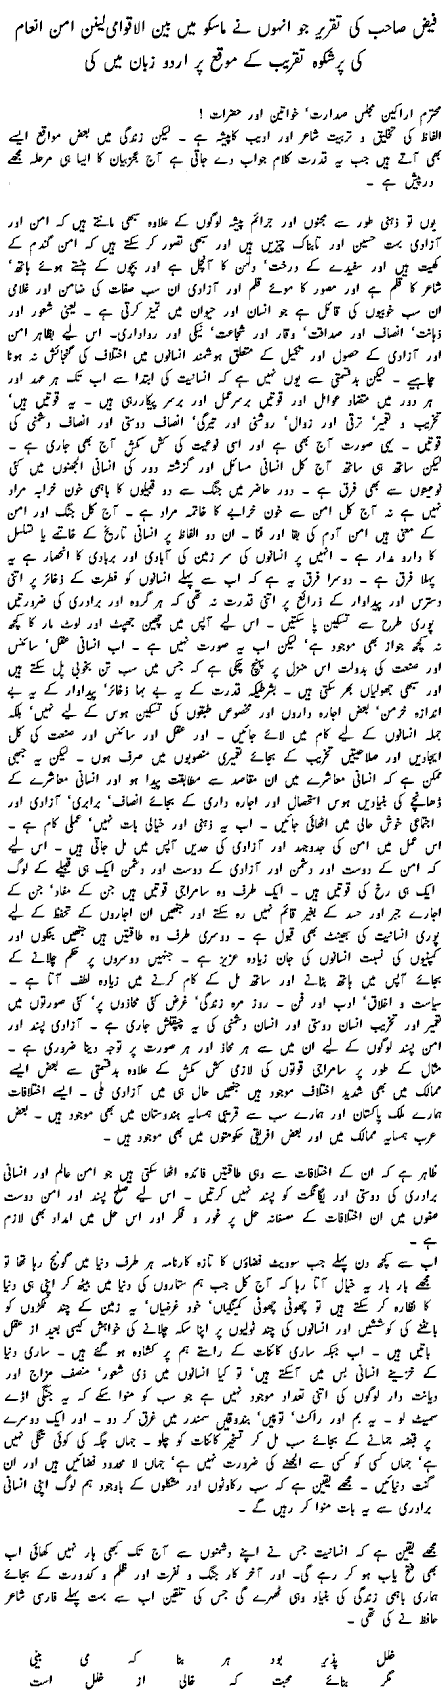 فیض صاحب کی تقریر جو انہوں نے ماسکو میں بین الاقوامی لینن امن انعام
کی پرشکوہ تقریب کے موقع پر اردو زبان میں کی
محترم اراکین مجلس صدارت' خواتین اور حضرات !
الفاظ کی تخلیق و تربیت شاعر اور ادیب کا پیشہ ہے ۔ لیکن زندگی میں بعض مواقع ایسے
بھی آتے ہیں جب یہ قدرت کلام جواب دے جاتی ہے آج عجز بیان کا ایسا ہی مرحلہ مجھے
درپیش ہے ۔
یوں تو ذہنی طور سے مجنوں اور جرائم پیشہ لوگوں کے علاوہ سبھی مانتے ہیں کہ امن اور
آزادی بہت حسین اور تابناک چیزیں ہیں اور سبھی تصور کر سکتے ہیں کہ امن گندم کے
کھیت ہیں اور سفیدے کے درخت' دلہن کا آنچل ہے اور بچوں کے ہنستے ہوئے ہاتھ'
شاعر کا قلم ہے اور مصور کا موئے قلم اور آزادی ان سب صفات کی ضامن اور غلامی
ان سب خوبیوں کی قاتل ہے جو انسان اور حیوان میں تمیز کرتی ہے ۔ یعنی شعور اور
ذہانت' انصاف اور صداقت' وقار اور شجاعت' نیکی اور رواداری۔ اس لیے بظاہر امن
اور آزادی کے حصول اور تکمیل کے متعلق ہوشمند انسانوں میں اختلاف کی گنجائش نہ ہونا
چاہیے ۔ لیکن بدقسمتی سے یوں نہیں ہے کہ انسانیت کی ابتدا سے اب تک ہر عہد اور
ہر دور میں متضاد عوامل اور قوتیں برسرعمل اور برسر پیکار رہی ہیں ۔ یہ قوتیں ہیں'
تخریب و تعمیر' ترقی اور زوال' روشنی اور تیرگی' انصاف دوستی اور انصاف دشمنی کی
قوتیں ۔ یہی صورت آج بھی ہے اور اسی نوعیت کی کش مکش آج بھی جاری ہے ۔
لیکن ساتھ ہی ساتھ آج کل انسانی مسائل اور گزشتہ دور کی انسانی الجھنوں میں کئی
نوعیتوں سے بھی فرق ہے ۔ دور حاضر میں جنگ سے دو قبیلوں کا باہمی خون خرابہ مراد
نہیں ہے نہ آج کل امن سے خون خرابے کا خاتمہ مراد ہے ۔ آج کل جنگ اور امن
کے معنی ہیں امن آدم کی بقا اور فنا ۔ ان دو الفاظ پر انسانی تاریخ کے خاتمے یا تسلسل
کا دارو مدار ہے ۔ انہیں پر انسانوں کی سر زمین کی آبادی اور بربادی کا انحصار ہے یہ
پہلا فرق ہے ۔ دوسرا فرق یہ ہے کہ اب سے پہلے انسانوں کو فطرت کے ذخائر پر اتنی
دسترس اور پیداوار کے ذرائع پر اتنی قدرت نہ تھی کہ ہر گروہ اور برادری کی ضرورتیں
پوری طرح سے تسکین پا سکتیں ۔ اس لیے آپس میں چھین جھپٹ اور لوٹ مار کا کچھ
نہ کچھ جواز بھی موجود ہے' لیکن اب یہ صورت نہیں ہے ۔ اب انسانی عقل' سائنس
اور صنعت کی بدولت اس منزل پر پہنچ چکی ہے کہ جس میں سب تن بخوبی پل سکتے ہیں
اور سبھی جھولیاں بھر سکتی ہیں ۔ بشرطیکہ قدرت کے یہ بے بہا ذخائر' پیداوار کے یہ بے
اندازہ خرمن' بعض اجارہ داروں اور مخصوص طبقوں کی تسکین ہوس کے لیے نہیں' بلکہ
جملہ انسانوں کے لیے کام میں لائے جائیں ۔ اور عقل اور سائنس اور صنعت کی کل
ایجادیں اور صلاحیتیں تخریب کے بجائے تعمیری منصوبوں میں صرف ہوں ۔ لیکن یہ جبھی
ممکن ہے کہ انسانی معاشرے میں ان مقاصد سے مطابقت پیدا ہو اور انسانی معاشرے کے
ڈھانچے کی بنیادیں ہوس استحصال اور اجارہ داری کے بجائے انصاف' برابری' آزادی اور
اجتماعی خوش حالی میں اٹھائی جائیں ۔ اب یہ ذہنی اور خیالی بات نہیں' عملی کام ہے ۔
اس عمل میں امن کی جدوجہد اور آزادی کی حدیں آپس میں مل جاتی ہیں ۔ اس لیے
کہ امن کے دوست اور دشمن اور آزادی کے دوست اور دشمن ایک ہی قبیلے کے لوگ
ایک ہی رخ کی قوتیں ہیں ۔ ایک طرف وہ سامراجی قوتیں ہیں جن کے مفاد' جن کے
اجارے جبر اور حسد کے بغیر قائم نہیں رہ سکتے اور جنھیں ان اجاروں کے تحفظ کے لیے
پوری انسانیت کی بھینٹ بھی قبول ہے ۔ دوسری طرف وہ طاقتیں ہیں جنھیں بنکوں اور
کمپنیوں کی نسبت انسانوں کی جان زیادہ عزیز ہے ۔ جنہیں دوسروں پر حکم چلانے کے
بجائے آپس میں ہاتھ بٹانے اور ساتھ مل کے کام کرنے میں زیادہ لطف آتا ہے ۔
سیاست و اخلاق' ادب اور فن ۔ روز مرہ زندگی' غرض کئی محاذوں پر' کئی صورتوں میں
تعمیر اور تخریب انسان دوستی اور انسان دشمنی کی یہ چپقلش جاری ہے ۔ آزادی پسند اور
امن پسند لوگوں کے لیے ان میں سے ہر محاذ اور ہر صورت پر توجہ دینا ضروری ہے ۔
مثال کے طور پر سامراجی قوتوں کی لازمی کش مکش کے علاوہ بدقسمتی سے بعض ایسے
ممالک میں بھی شدید اختلاف موجود ہیں جنھیں حال ہی میں آزادی ملی ۔ ایسے اختلافات
ہمارے ملک پاکستان اور ہمارے سب سے قریبی ہمسایہ ہندوستان میں بھی موجود ہیں ۔ بعض
عرب ہمسایہ ممالک میں اور بعض افریقی حکومتوں میں بھی موجود ہیں ۔
ظاہر ہے کہ ان کے اختلافات سے وہی طاقتیں فائدہ اٹھا سکتی ہیں جو امن عالم اور انسانی
برادری کی دوستی اور یگانگت کو پسند نہیں کرتیں ۔ اس لیے صلح پسند اور امن دوست
صفوں میں ان اختلافات کے منصفانہ حل پر غور و فکر اور اس حل میں امداد بھی لازم
ہے ۔
اب سے کچھ دن پہلے جب سوویٹ فضاؤں کا تازہ کارنامہ ہر طرف دنیا میں گونج رہا تھا تو
مجھے بار بار یہ خیال آتا رہا کہ آج کل جب ہم ستاروں کی دنیا میں بیٹھ کر اپنی ہی دنیا
کا نظارہ کر سکتے ہیں تو چھوٹی چھوٹی کمینگیاں' خود غرضیاں' یہ زمین کے چند ٹکڑوں کو
بانٹنے کی کوششیں اور انسانوں کی چند ٹولیوں پر اپنا سکہ چلانے کی خواہش کیسی بعید از عقل
باتیں ہیں ۔ اب جبکہ ساری کائنات کے راستے ہم پر کشادہ ہو گئے ہیں ۔ ساری دنیا
کے خزینے انسانی بس میں آسکتے ہیں' تو کیا انسانوں میں ذی شعور' منصف مزاج اور
دیانت دار لوگوں کی اتنی تعداد موجود نہیں ہے جو سب کو منوا سکے کہ یہ جنگی اڈے
سمیٹ لو ۔ یہ بم اور راکٹ' توپیں' بندوقیں سمندر میں غرق کر دو ۔ اور ایک دوسرے
پر قبضہ جمانے کے بجائے سب مل کر تسخیر کائنات کو چلو ۔ جہاں جگہ کی کوئی تنگی نہیں
ہے' جہاں کسی کو کسی سے الجھنے کی ضرورت نہیں ہے' جہاں لا محدود فضائیں ہیں اور ان
گنت دنیائیں ۔ مجھے یقین ہے کہ سب رکاوٹوں اور مشکلوں کے باوجود ہم لوگ اپنی انسانی
برادری سے یہ بات منوا کر رہیں گے ۔
مجھے یقین ہے کہ انسانیت جس نے اپنے دشمنوں سے آج تک کبھی ہار نہیں کھائی اب
بھی فتح یاب ہو کر رہے گی۔ اور آخر کار جنگ و نفرت اور ظلم و کدورت کے بجائے
ہماری باہمی زندگی کی بنیاد وہی ٹھہرے گی جس کی تلقین اب سے بہت پہلے فارسی شاعر
حافظ نے کی تھی ۔
خلل پذیر بود ہر بنا کہ می بینی
مگر بنائے محبت کہ خالی از خلل است